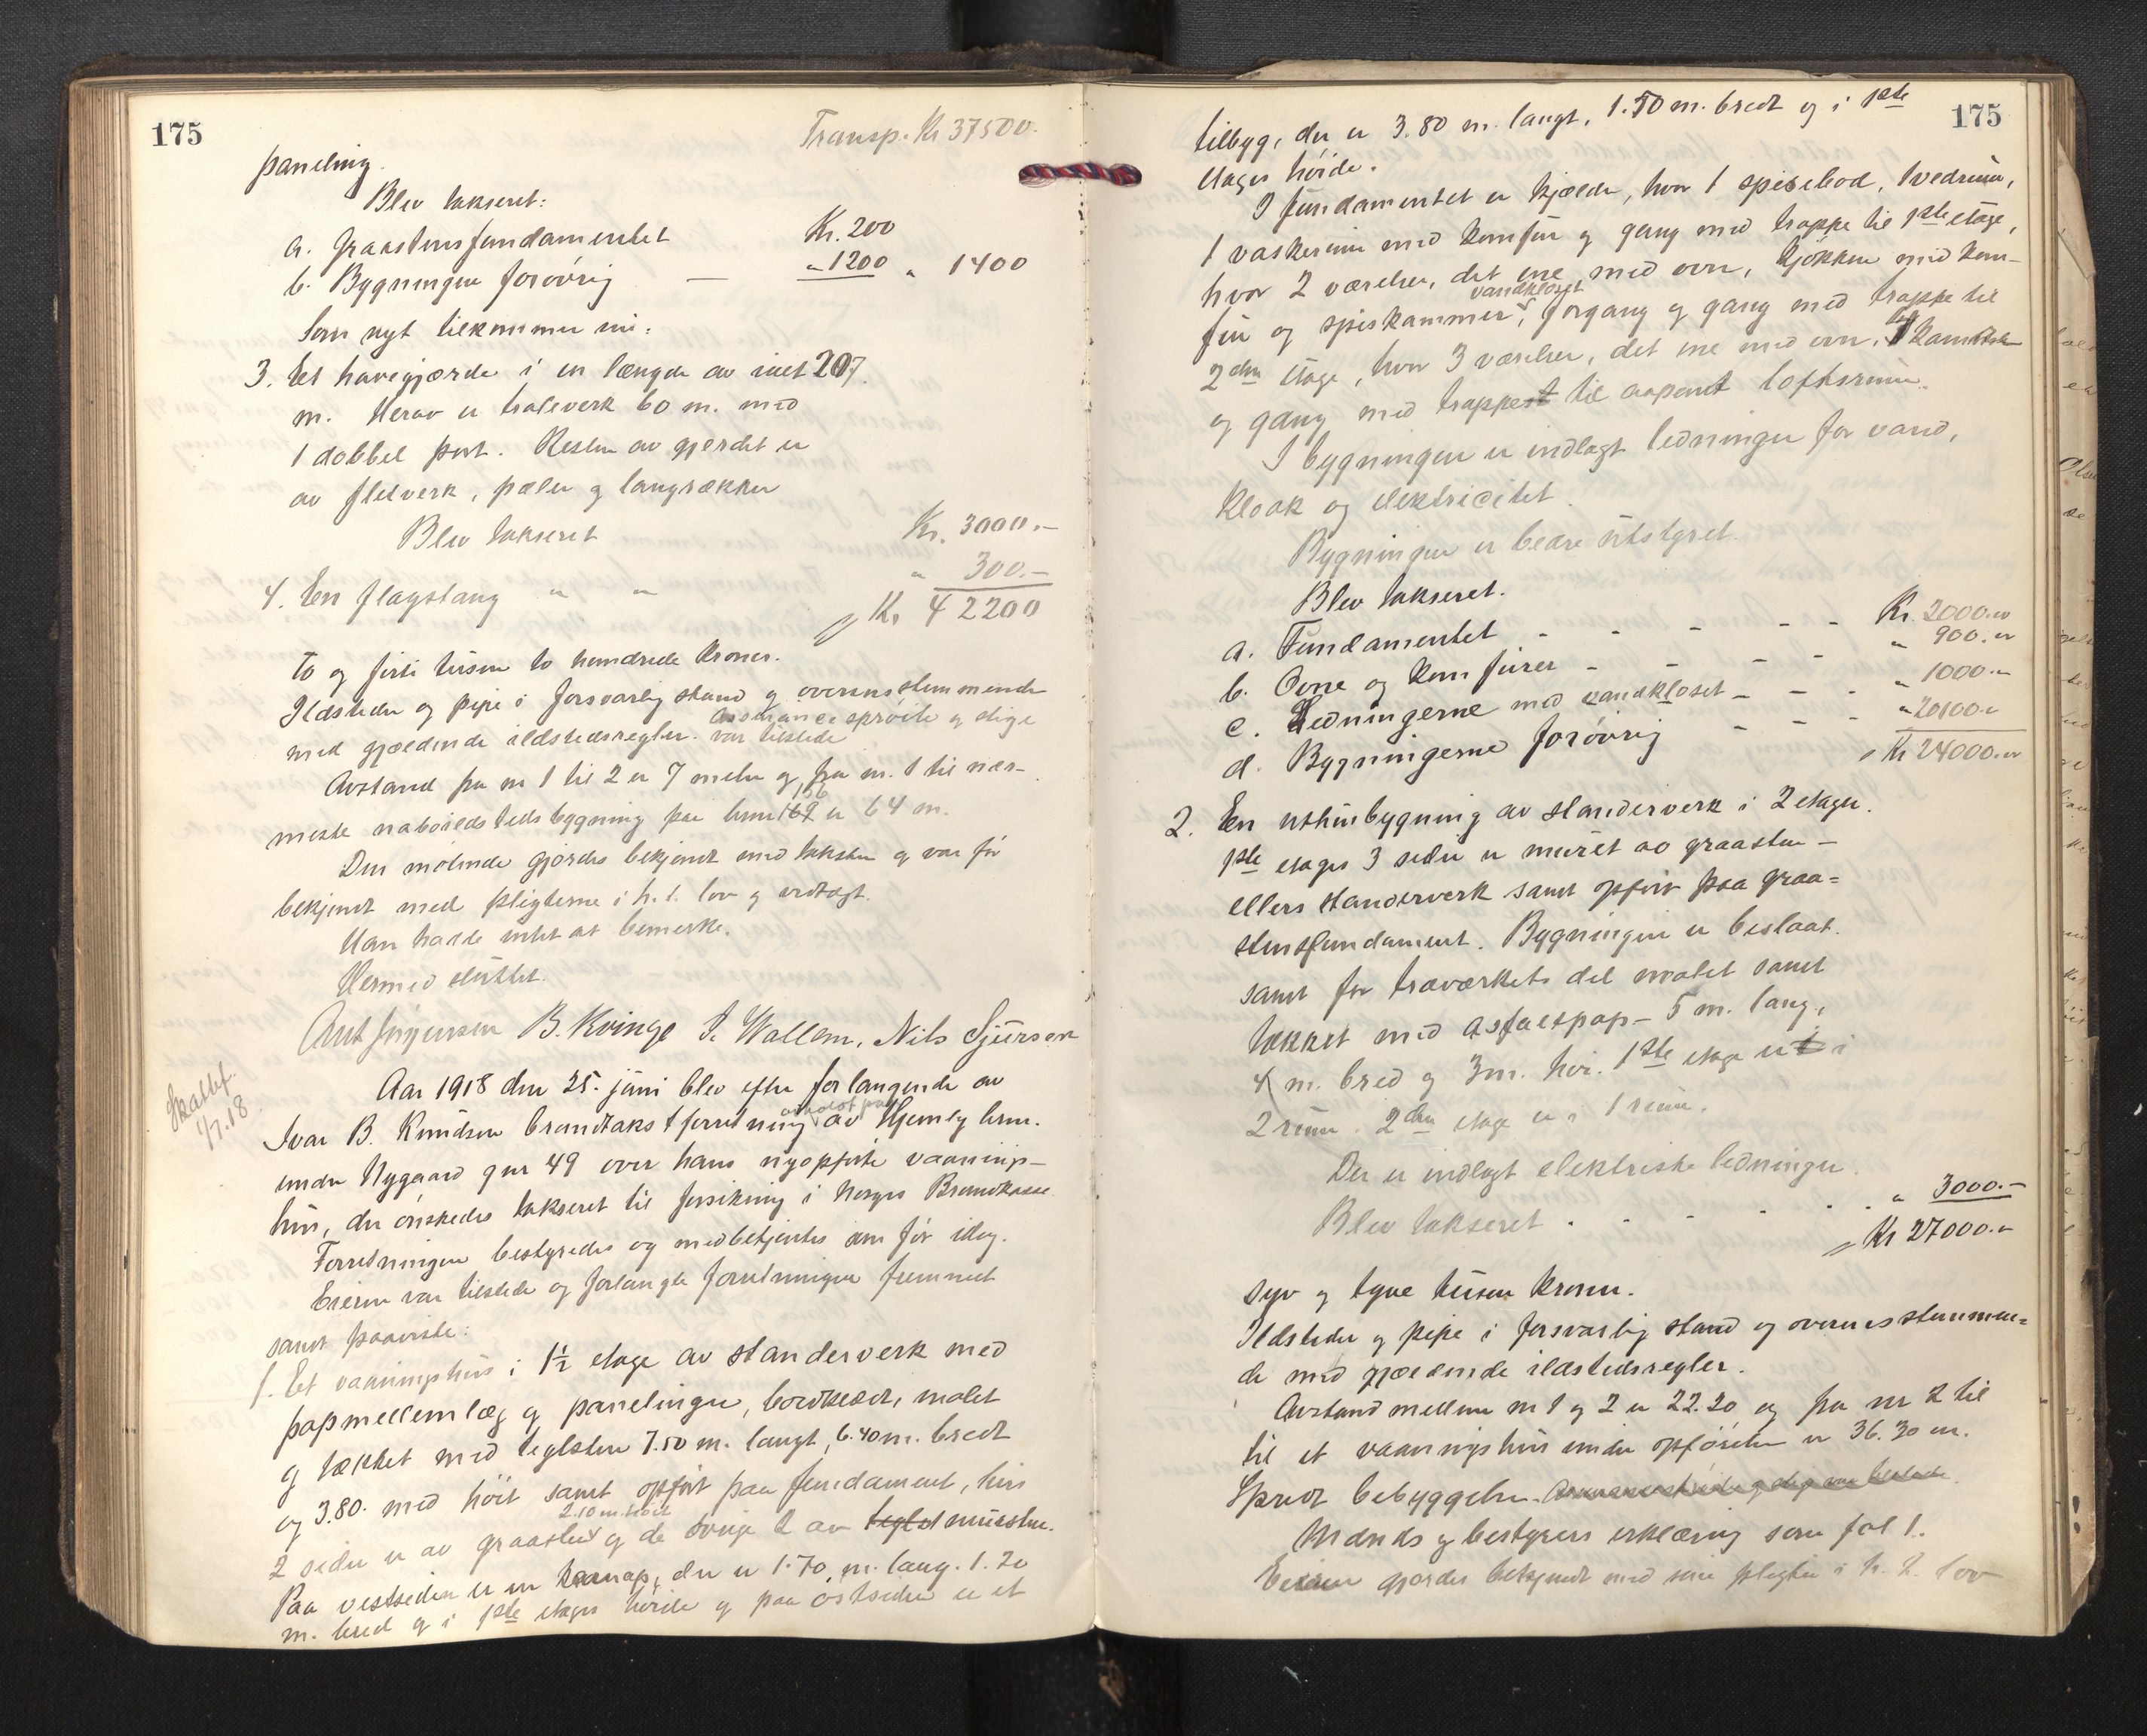 175
Transp. Kr 37500.
paneling.
Blev takseret:
a. Graastensfundamentet Kr. 200
b. Bygningen forøvrig — " 1200 " 1400
Som nyt tilkommer nu:
3. Et havegjærde i en længde av 207
m. Herav er stakverk 60 m. med
1 dobbel port. Resten av gjerdet er
av fletverk, pæler og langrækker
Blev takseret Kr. 3000.-
4. En flagstang " " " 300.-
Kr 42200
to og firti tusen to hundrede kroner.
Ildsteder og pipe i forsvarlig stand og overensstemmende
med gjældende ildstedsregler. Assuransesprøite og stige
var tilstede
Avstand fra nr 1 til 2 er 7 meter og fra nr. 1 til nær-
meste naboildstedsbygning paa brnr 166 er 64 m.
Den møtende gjordes bekjendt med taksten og var før
bekjendt med pligterne i h. t. lov og vedtægt.
Han hadde intet at bemerke.
Hermed sluttet.
Ant Jørgensen B. Kvinge J. Wallem, Nils Sjursen
Skattef.
1/7.18
Aar 1918 den 25. juni blev efter forlangende av
Ivar B. Knudsen brandtakstforretning avholdt paa Hjemly brnr.
under Nygaard gnr 49 over hans nyopførte vaanings-
hus, der ønskedes takseret til forsikring i Norges Brandkasse.
Forretningen bestyredes og medbetjentes som før idag.
Eieren var tilstede og forlangte forretningen fremmet
samt paaviste:
1. Et vaaningshus i 1½ etage av standerverk med
papmellemlæg og panelinger, bordklædt, malet
og tækket med teglsten 7.50 m. langt, 6.40 m. bredt
og 3.80. med høit samt opført paa fundament, hvis
2 sider er av graasten 2.10 m. høit og de øvrige 2 av tegl mursten.
Paa vestsiden er en , der er 1.70 m. lang. 1.20
m. bred og i 1ste etages høide og paa østsiden er et
175
tilbyg, der er 3.80 m. langt, 1.50 m. bredt og i 1ste
etages høide.
I fundamentet er kjælder, hvor 1 spisebod, 1 vedrum,
1 vaskerum med komfur og gang med trappe til 1ste etage,
hvor 2 værelser, det ene med ovn, kjøkken med kom-
fur og spiskammer, vandkloset, forgang og gang med trappe til
2den etage, hvor 3 værelser, det ene med ovn,
og gang med trappe til aapent loftsrum.
I bygningen er indlagt ledninger for vand,
kloak og elektricitet.
Bygningen er bedre utstyret.
Blev takseret.
a. Fundamentet - - - - - Kr. 2000.
b. Ovne og komfurer - - - - " 900.
c. Ledningerne med vandkloset - - - " 1000.
d. Bygningerne forøvrig - - - " 20100.
Kr 24000.
2. En uthusbygning av standerverk i 2 etager.
1ste etages 3 sider er muret av graasten -
ellers standerverk samt opført paa graa=
stensfundament. Bygningen er beslaat.
samt for træverkets del malet samt
tækket med asfaltpap - 5 m. lang,
4 m. bred og 3 m. høi. 1ste etage er i
2 rum. 2den etage er i 1 rum.
Der er indlagt elektriske ledninger.
Blev takseret . - - - - " 3000.-
Kr 27000.
Syv og tyve tusen kroner.
Ildsteder og pipe i forsvarlig stand og overensstemmen=
de med gjældende ildstedsregler.
Avstand mellem nr 1 og 2 er 22.20 og fra nr 2 til
til et vaaningshus under opførelse er 36.30 m.
Spredt bebyggelse.
Mænds og bestyrers erklæring som fol 1.
Eieren gjordes bekjendt med sine pligter i h. t. lov